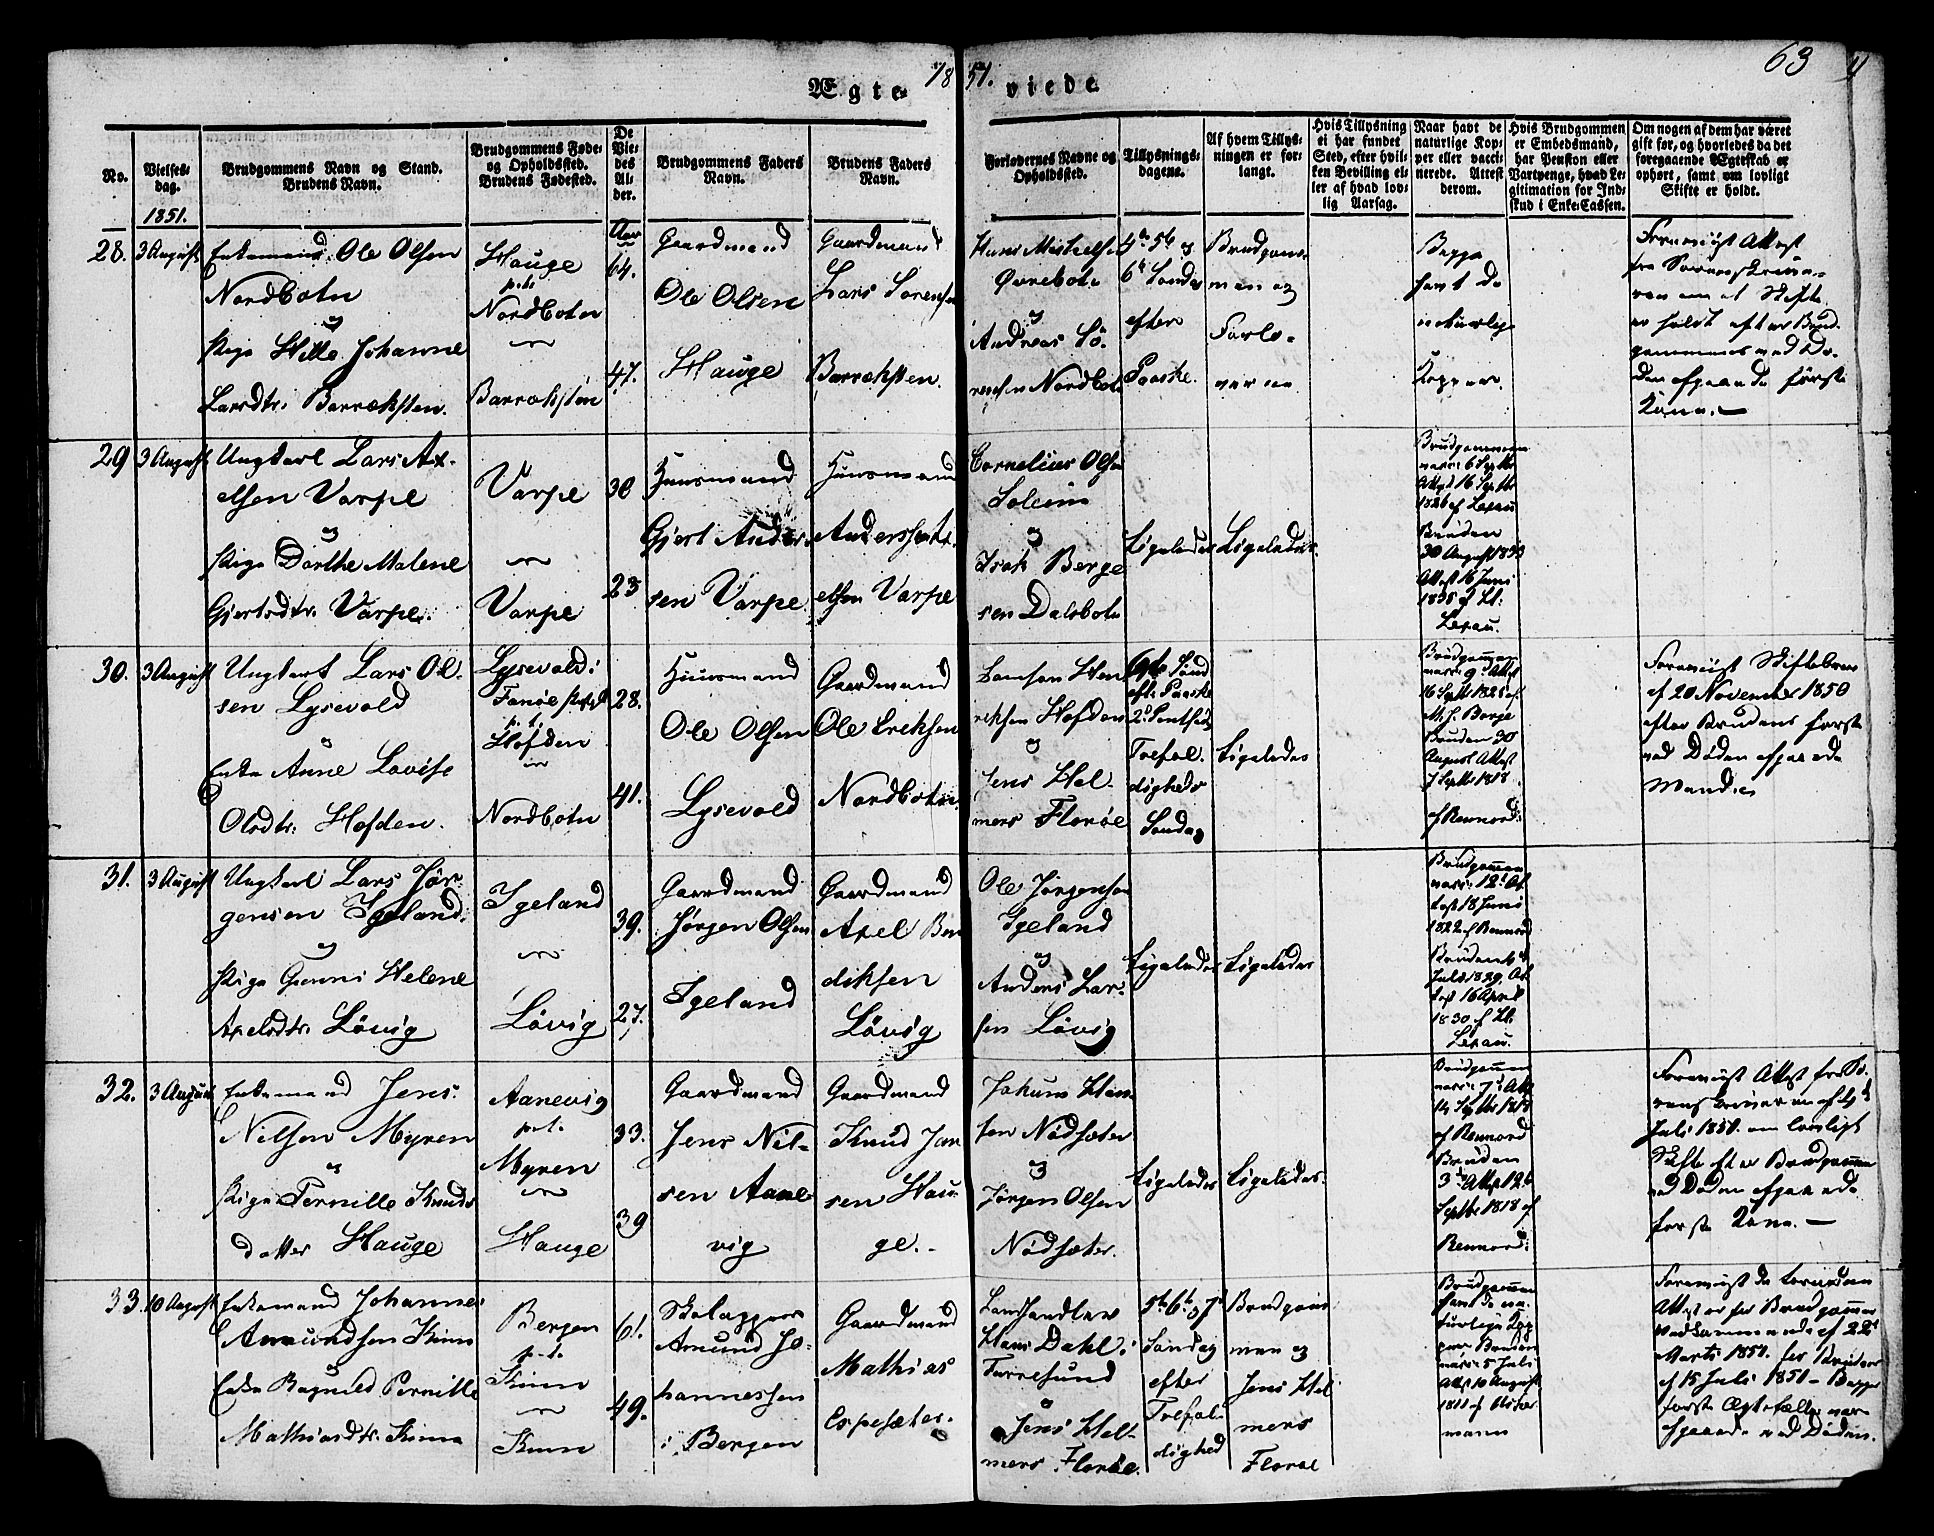 63
Ægte 1851. viede
No.
Vielses-
dag.
1851.
Brudgommens Navn og Stand.
Brudens Navn.
Brudgommens Føde-
og Opholdssted.
Brudens Fødested.
De
Vie-
des
Al-
der.
Aar
Brudgommens Faders
Navn.
Brudens Faders
Navn.
Forlovernes Navne og
Opholdssted.
Tillysnings-
dagene.
Af hvem Tillys-
ningen er for-
langt.
Hvis Tillysning
ei har fundet
Sted, efter hvil-
ken Bevilling el-
ler af hvad lov-
lig Aarsag.
Naar havt de
naturlige Kop-
per eller vacci-
nerede. Attest
derom.
Hvis Brudgommen
er Embedsmand,
har Pension eller
Vartpenge, hvad Le-
gitimation for Ind-
skud i Enke-Cassen.
Om nogen af dem har været
gift før, og hvorledes da det
foregaaende Ægteskab er
ophørt, samt om lovligt
Skifte er holdt.
28.
3 August
Enkemand Ole Olsen
Nordbotn
og
Pige Hille Johanne
Larsdtr. Barræksten.
Hauge
p.t.
Nordbotn
Barræksten
64.
47.
Gaardmand
Ole Olsen
Hauge
Gaardmand
Lars Sørensen
Barræksten.
Hans Mikkelsen
Øvrebotn
og
Andreas Sø-
rensen Nordbotn
4de 5te og
6te Søndag
efter
Paaske.
Brudgom-
men og
Forlo-
verne
Begge
havt de
naturlige
Kopper.
Foreviist Attest
fra Sorenskrive-
ren om at Skifte
er holdt efter Brud-
gommens ved Dø-
den afgaaede første
Kone.
29
3 August
Ungkarl Lars Ax-
elsen Varpe
og
Pige Dorthe Malene
Gjertsdtr. Varpe.
Varpe
Varpe
30
23
Huusmand
Gjert Anders-
sen Varpe
Huusmand
Anderssen Ax-
elsen Varpe
Cornelius Olsen
Soleim
og
Isak Berge
sen Dalsbotn
Ligeledes
Ligeledes.
Brudgommen
vacc. 6 Septbr
Attest 16 Septbr
1826 af Lexau
Bruden
30 August 1833
Attest 16 Juni
1835 af Kl:
Lexau.
30.
3 August
Ungkarl Lars Ol-
sen Lysevold
og
Enke Anne Lovise
Olsdtr. Hofden.
Lysevold i
Fanøe
p.t.
Hofden
Nordbotn
28.
41.
Huusmand
Ole Olsen
Lysevold
Gaardmand
Ole Eriksen
Nordbotn.
Hen
riksen Hofden
og
Jens Hel-
mers Florøe
6te Sønd
eft. Paaske
Trefol.
digheds
Søndag
Ligeledes
Brudgommen
vacc. 9de Attest
16 Septbr 1828 af
Bruden 30
August Attest
7 Septbr 1818
af Rennord:
Foreviist Skiftebrev
af 20 November 1850
efter Brudens første
ved Døden afgaaede
Mand.
31.
3 August
Ungkarl Lars Jør-
gensen Igeland.
og
Pige Gunni Helene
Axelsdtr. Løvig
Igeland
Løvig
39.
27.
Gaardmand
Jørgen Olsen
Igeland
Gaardmand
Axel Ben
diksen
Løvig
Ole Jørgensen
Igeland
og
Anders Lar-
sen Løvig
Ligeledes
Ligeledes
Brudgommen
vacc. 12te At-
test 18 Juni
1822 af Rennord
Bruden
Juli 1829 At-
test 16 April
1830 af Kl.
Lexau.
32.
3 August
Enkemand Jens
Nilsen Myren
og
Pige Pernille Knuds
datter Hauge
Aanevig
p.t.
Myren
Hauge
33.
39
Gaardmand
Jens Nil-
sen Aane
vig
Gaardmand
Knud Jan
sen Hau-
ge.
Jokum Han
sen Nødsæter
og
Jørgen Olsen
Nødsæter.
Ligeledes
Ligeledes.
Brudgommen
vacc. 7de Att.
14 Septbr 1818
af Rennord
Bruden
3de Attest 12te
Septbr 1818 af
Rennord:
Foreviist Attest fra So-
renskriveren af 4de
Juli 1851 om lovligt
Skifte efter Brudgommens
ved Døden afgaaede
første Kone.
33.
10 August
Enkemand Johannes
Amundsen Kinn
Enke Ragnild Pernille
Mathiasdtr. Kinn
Bergen
p.t.
Kinn
Kinn
61.
49.
Skolapper
Amund Jo-
hannessen
i Bergen
Gaardmand
Mathias
Espesæter.
Landhandler
Hans Dahl i
Farresund
og
Jens Hel-
mers Florøe.
5te 6te og 7de
Søndag
efter
Trefol-
dighed
Brudgom
men og
Jens Hel
mers
Florøe
Brudgommen
havt de na-
turlige Kop
per Bruden
vacc. 5 Juli
Attest 10 August
1811 af Asker
mann
Foreviist de fornødne
Attester for Brudgommen
vedkommende af 22de
Marts 1851. for Bruden
af 15 Juli 1851 - Begges
første Ægtefæller vare
afgaaede ved Døden.